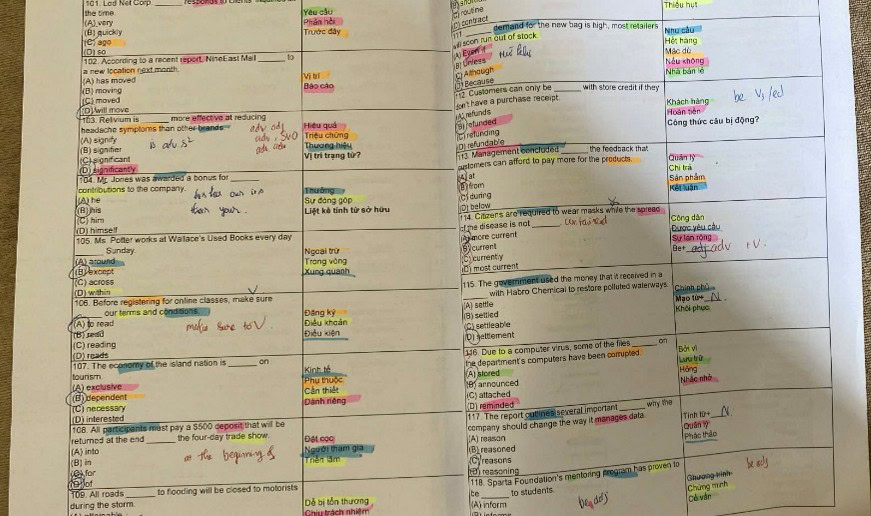 101. Lod Net Corp. ______ responds to clients
the time.
(A) very
(B) quickly
(C) ago
(D) so
Yêu cầu
Phản hồi
Trước đây
102. According to a recent report, NineEast Mall ______ to
a new location next month.
(A) has moved
(B) moving
(C) moved
(D) will move
Vị trí
Báo cáo
103. Relivium is ______ more effective at reducing
headache symptoms than other brands
(A) signify
(B) signifier
(C) significant
(D) significantly
adv adj
Hiệu quả
Triệu chứng
Thương hiệu
Vị trí trạng từ?
104. Mr. Jones was awarded a bonus for ______
contributions to the company.
(A) he
(B) his
(C) him
(D) himself
Thưởng
Sự đóng góp
Liệt kê tính từ sở hữu
105. Ms. Potter works at Wallace's Used Books every day
______ Sunday.
(A) around
(B) except
(C) across
(D) within
Ngoại trừ
Trong vòng
Xung quanh
106. Before registering for online classes, make sure
______ our terms and conditions.
(A) to read
(B) read
(C) reading
(D) reads
make sure to V
Đăng ký
Điều khoản
Điều kiện
107. The economy of the island nation is ______ on
tourism.
(A) exclusive
(B) dependent
(C) necessary
(D) interested
Kinh tế
Phụ thuộc
Cần thiết
Dành riêng
108. All participants must pay a $500 deposit that will be
returned at the end ______ the four-day trade show.
(A) into
(B) in
(C) for
(D) of
at the beginning of
Đặt cọc
Người tham gia
Triển lãm
109. All roads ______ to flooding will be closed to motorists
during the storm.
Dễ bị tổn thương
Chịu trách nhiệm
(C) routine
(D) contract
Thiếu hụt
111. ______ demand for the new bag is high, most retailers
will soon run out of stock.
(A) Even if
(B) Unless
(C) Although
(D) Because
Nhu cầu
Hết hàng
Mặc dù
Nếu không
Nhà bán lẻ
112. Customers can only be ______ with store credit if they
don't have a purchase receipt.
(A) refunds
(B) refunded
(C) refunding
(D) refundable
Khách hàng
Hoàn tiền
Công thức câu bị động?
be V3/ed
113. Management concluded ______ the feedback that
customers can afford to pay more for the products.
(A) at
(B) from
(C) during
(D) below
Quản lý
Chi trả
Sản phẩm
Kết luận
114. Citizens are required to wear masks while the spread
of the disease is not ______
(A) more current
(B) current
(C) currently
(D) most current
Công dân
Được yêu cầu
Sự lan rộng
Be+ adj adv + V.
115. The government used the money that it received in a
______ with Habro Chemical to restore polluted waterways.
(A) settle
(B) settled
(C) settleable
(D) settlement
Chính phủ
Mạo từ+ N.
Khôi phục
116. Due to a computer virus, some of the files ______ on
the department's computers have been corrupted.
(A) stored
(B) announced
(C) attached
(D) reminded
Bởi vì
Lưu trữ
Hỏng
Nhắc nhở
117. The report outlines several important ______ why the
company should change the way it manages data.
(A) reason
(B) reasoned
(C) reasons
(D) reasoning
Tính từ+ N
Quản lý
Phác thảo
118. Sparta Foundation's mentoring program has proven to
be ______ to students.
(A) inform
be adj
Chương trình
Chứng minh
Cố vấn
be adj